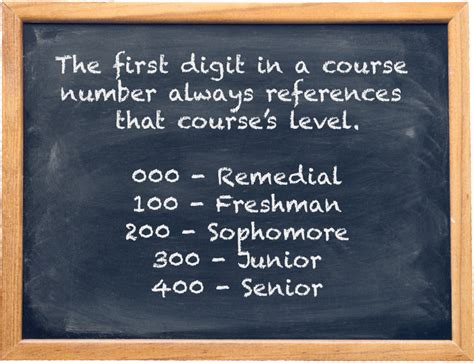 The first digit in a course
number always references
that course's level.
000 - Remedial
100 - Freshman
200 - Sophomore
300 - Junior
400 - Senior